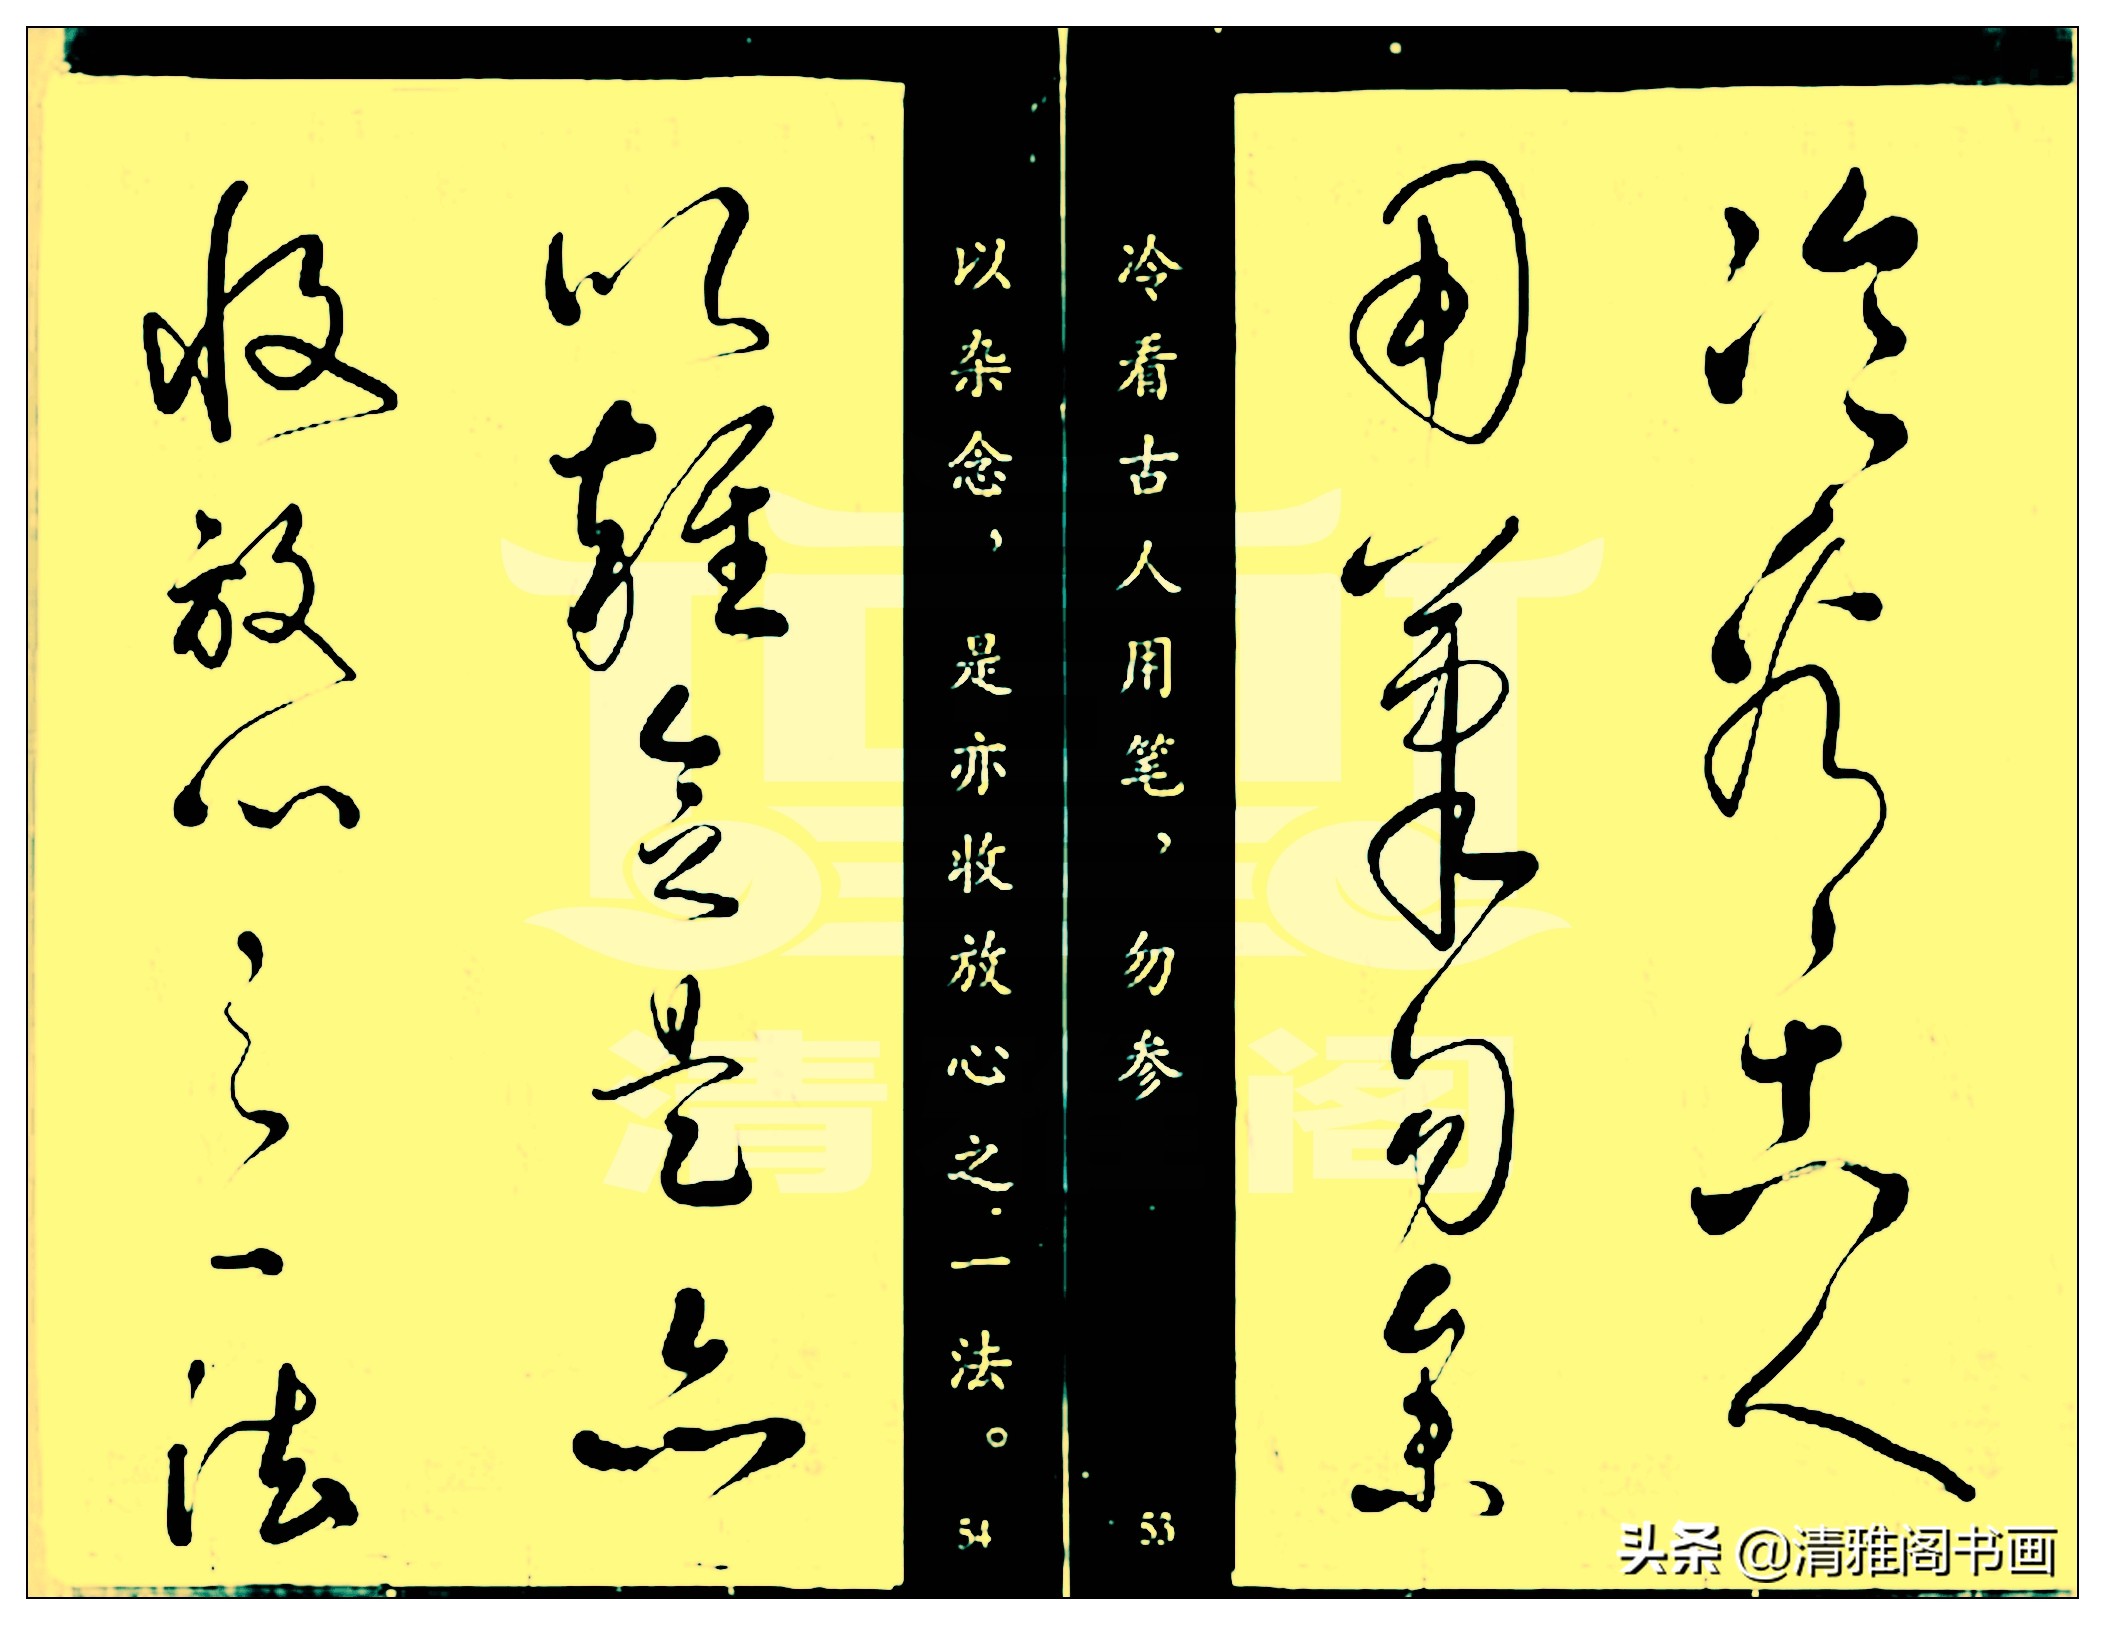 冷看古人
用笔勿参
冷看古人用笔，勿参
53
以杂念，是亦收放心之一法。
54
以雜念是亦
收放心之一法
清 阁
头条 @清雅阁书画